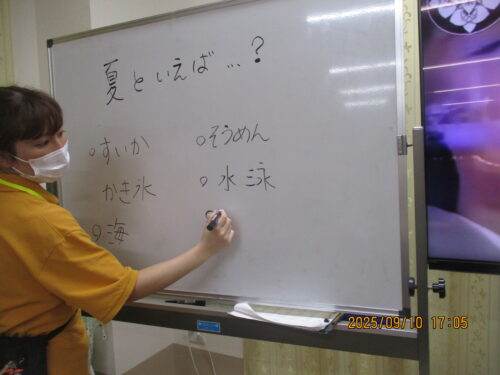 夏といえば…？
○すいか
かき氷
○海
○そうめん
○水泳
○
2025/09/10 17:05